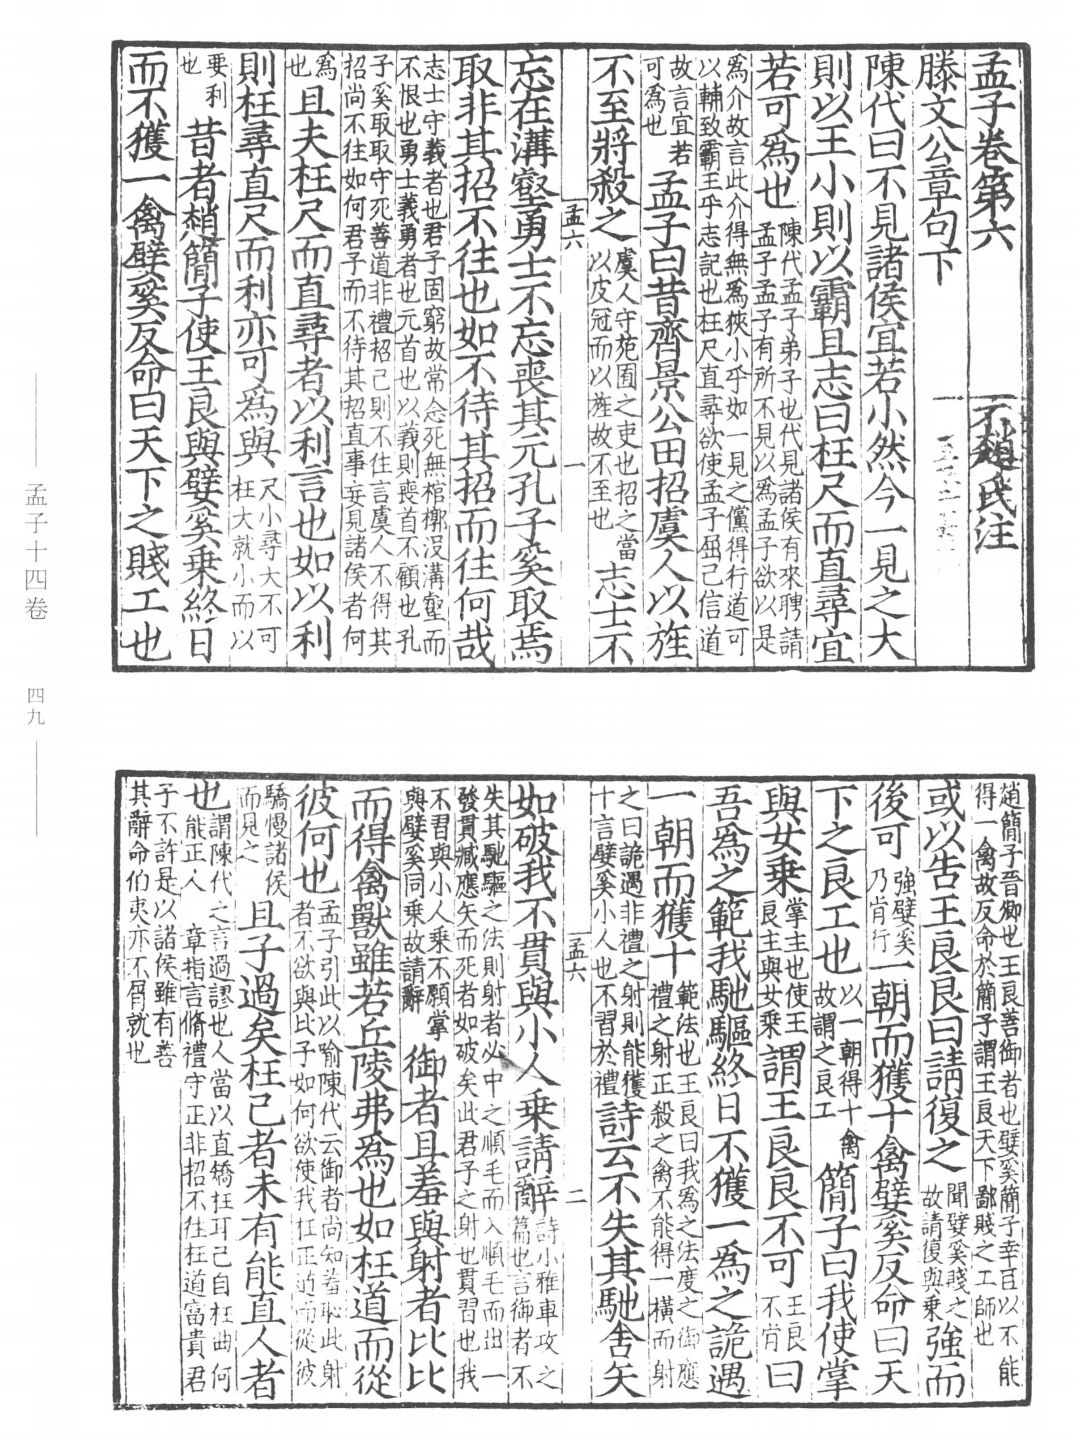 孟子卷第六 趙氏注
滕文公章句下
陳代曰不見諸侯宜若小然今一見之大
則以王小則以霸且志曰枉尺而直尋宜
若可爲也
陳代孟子弟子也代見諸侯有來聘請
孟子孟子有所不見以爲孟子欲以是
爲介故言此介得無爲狹小乎如一見之儻得行道可
以輔致霸王乎志記也枉尺直尋欲使孟子屈己信道
故言宜若
可爲也
孟子曰昔齊景公田招虞人以旌
不至將殺之
虞人守苑囿之吏也招之當
以皮冠而以旌故不至也
志士不
孟六 一
忘在溝壑勇士不忘喪其元孔子奚取焉
取非其招不往也如不待其招而往何哉
志士守義者也君子固窮故常念死無棺槨沒溝壑而
不恨也勇士義勇者也元首也以義則喪首不顧也孔
子奚取取守死善道非禮招己則不往言虞人不得其
招尚不往如何君子而不待其招直事妄見諸侯者何
爲
也
且夫枉尺而直尋者以利言也如以利
則枉尋直尺而利亦可爲與
尺小尋大不可
枉大就小而以
要利
也
昔者趙簡子使王良與嬖奚乘終日
而不獲一禽嬖奚反命曰天下之賤工也
趙簡子晉卿也王良善御者也嬖奚簡子幸臣以不能
得一禽故反命於簡子謂王良天下鄙賤之工師也
或以告王良良曰請復之
聞嬖奚賤之
故請復與乘
強而
後可
強嬖奚
乃肯行
一朝而獲十禽嬖奚反命曰天
下之良工也
以一朝得十禽
故謂之良工
簡子曰我使掌
與女乘
掌主也使王
良主與女乘
謂王良良不可
王良
不肯
曰
吾爲之範我馳驅終日不獲一爲之詭遇
一朝而獲十
範法也王良曰我爲之法度之御應
禮之射正殺之禽不能得一橫而射
之曰詭遇非禮之射則能獲
十言嬖奚小人也不習於禮
詩云不失其馳舍矢
孟六 二
如破我不貫與小人乘請辭
詩小雅車攻之
篇也言御者不
失其馳驅之法則射者必中之順毛而入順毛而出一
發貫臧應矢而死者如破矣此君子之射也貫習也我
不習與小人乘不願掌
與嬖奚同乘故請辭
御者且羞與射者比比
而得禽獸雖若丘陵弗爲也如枉道而從
彼何也
孟子引此以喻陳代云御者尚知羞恥此射
者不欲與比子如何欲使我枉正道而從彼
驕慢諸侯
而見之
且子過矣枉己者未有能直人者
也
謂陳代之言過謬也人當以直矯枉耳己自枉曲何
能正人 章指言脩禮守正非招不往枉道富貴君
子不許是以諸侯雖有善
其辭命伯夷亦不屑就也
孟子十四卷
四九